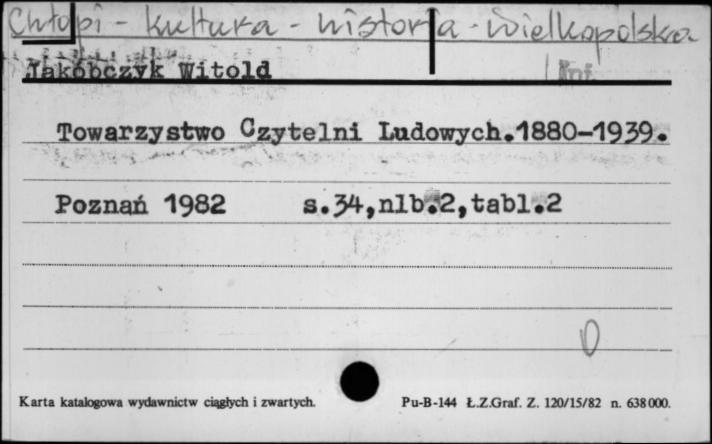 Chłopi - kultura - historia - Wielkopolska
Jakóbczyk Witold
Towarzystwo Czytelni Ludowych.1880-1939.
Poznań 1982 s.34,nlb.2,tabl.2
0
Karta katalogowa wydawnictw ciągłych i zwartych. Pu-B-144 Ł.Z.Graf. Z. 120/15/82 n. 638 000.